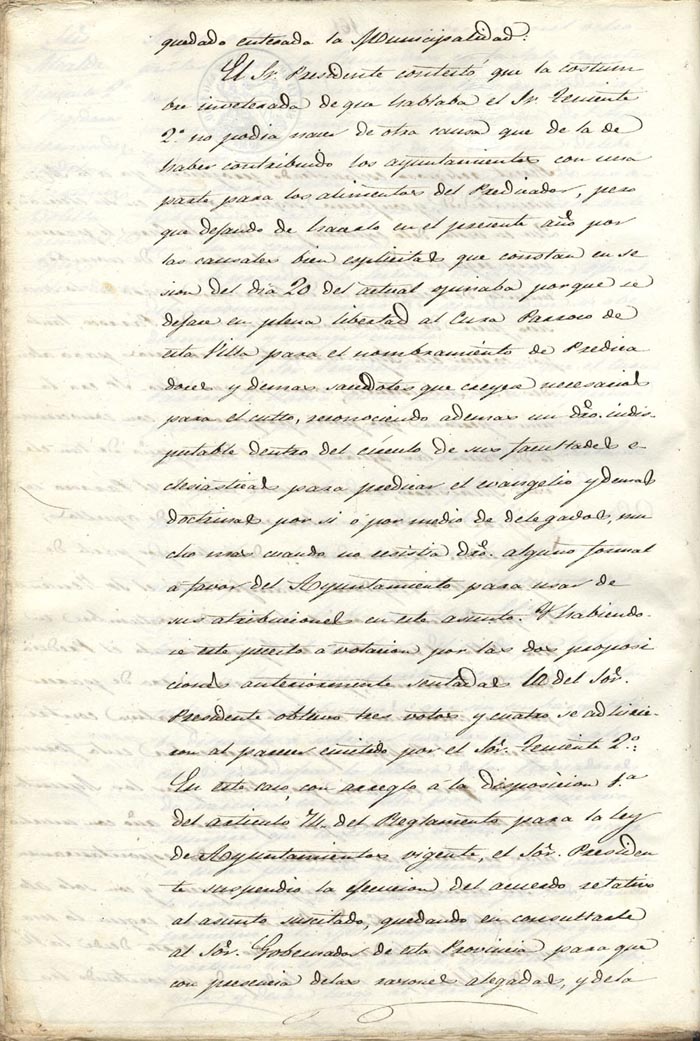 quedado enterada la Municipalidad:
El Sr. Presidente contestó que la costum
bre inveterada de que hablaba el Sr. Teniente
2.º no podia nacer de otra causa que de la de
haber contribuido los ayuntamientos con una
parte para los alimentos del Predicador, pero
que dejando de hacerlo en el presente año por
las causales bien esplicitas que constan en se
sion del dia 20 del actual opinaba porque se
dejase en plena libertad al Cura Parroco de
esta Villa para el nombramiento de Predica
dores y demas sacerdotes que creyese necesarios
para el culto, reconociendo ademas un dro. indis
putable dentro del circulo de sus facultades e
clesiasticas para predicar el evangelio y demas
doctrinas por si ó por medio de delegados, mu
cho mas cuando no ecsistia dro. alguno formal
a favor del Ayuntamiento para usar de
sus atribuciones en este asunto. Y habiendo
se este puesto a votacion por las dos proposi
ciones anteriormente sentadas la del Sor.
Presidente obtuvo tres votos y cuatro se adhirie
ron al parecer emitido por el Sor. Teniente 2.º:
En este caso, con arreglo á la disposicion 1.ª
del articulo 74. del Reglamento para la ley
de Ayuntamientos vigente, el Sor. Presiden
te suspendió la ejecucion del acuerdo relativo
al asunto suscitado, quedando en consultarle
al Sor. Gobernador de esta Provincia para que
con presencia delas razones alegadas, y dela